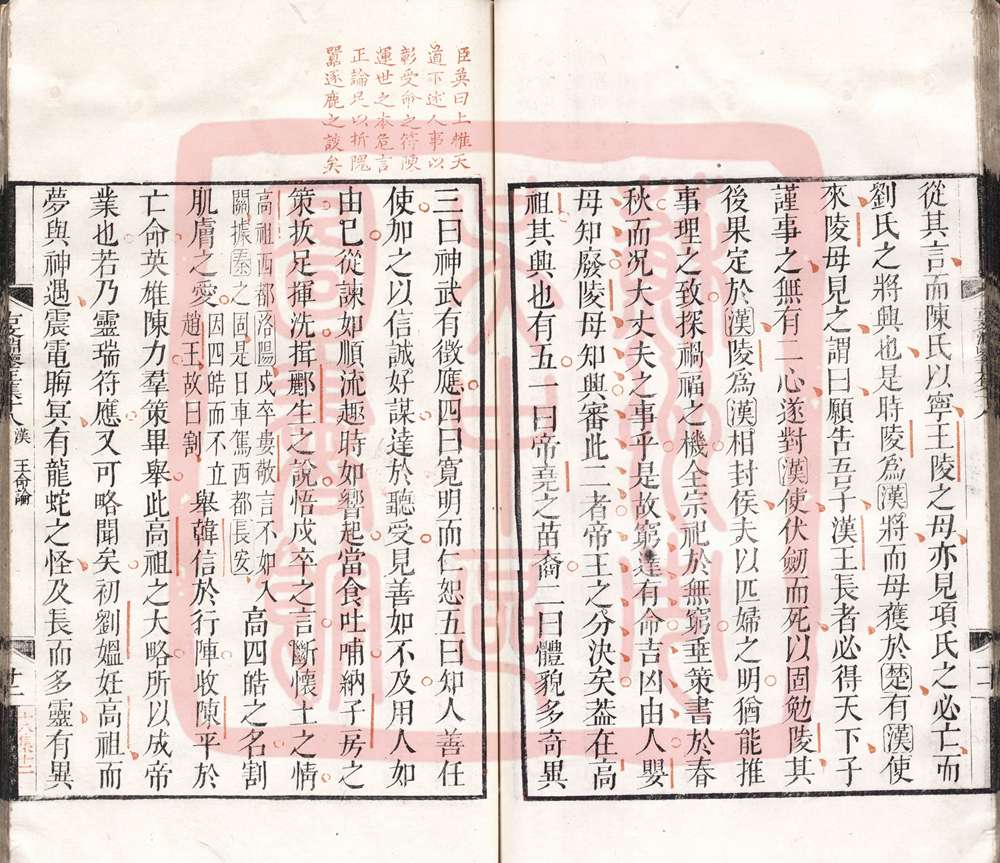 從其言而陳氏以寧王陵之母亦見項氏之必亡而
劉氏之將興也是時陵爲漢將而母獲於楚有漢使
來陵母見之謂曰願告吾子漢王長者必得天下子
謹事之無有二心遂對漢使伏劒而死以固勉陵其
後果定於漢陵爲漢相封侯夫以匹婦之明猶能推
事理之致探禍福之機全宗祀於無窮垂策書於春
秋而況大丈夫之事乎是故窮達有命吉凶由人嬰
母知廢陵母知興審此二者帝王之分決矣葢在高
祖其興也有五一曰帝堯之苗裔二曰體貌多奇異
臣英曰上惟天
道下述人事以
彰受命之符陳
運世之本危言
正論足以折隗
囂逐鹿之談矣
三曰神武有徵應四曰寬明而仁恕五曰知人善任
使加之以信誠好謀達於聽受見善如不及用人如
由己從諫如順流趣時如響起當食吐哺納子房之
策拔足揮洗揖酈生之說悟戍卒之言斷懷土之情
高祖西都洛陽戍卒婁敬言不如入
關據秦之固是日車駕西都長安
高四皓之名割
肌膚之愛
因四皓而不立
趙王故曰割
舉韓信於行陣收陳平於
亡命英雄陳力羣策畢舉此高祖之大略所以成帝
業也若乃靈瑞符應又可略聞矣初劉媼妊高祖而
夢與神遇震電晦冥有龍蛇之怪及長而多靈有異
漢 王命論